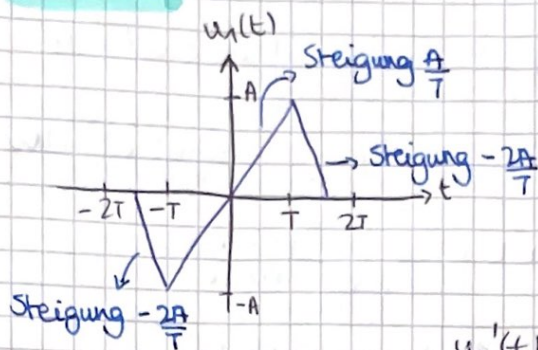 u₁(t)
Steigung A/T
A
Steigung - 2A/T
t
-2T -T T 2T
-A
Steigung - 2A/T
u₁'(t)